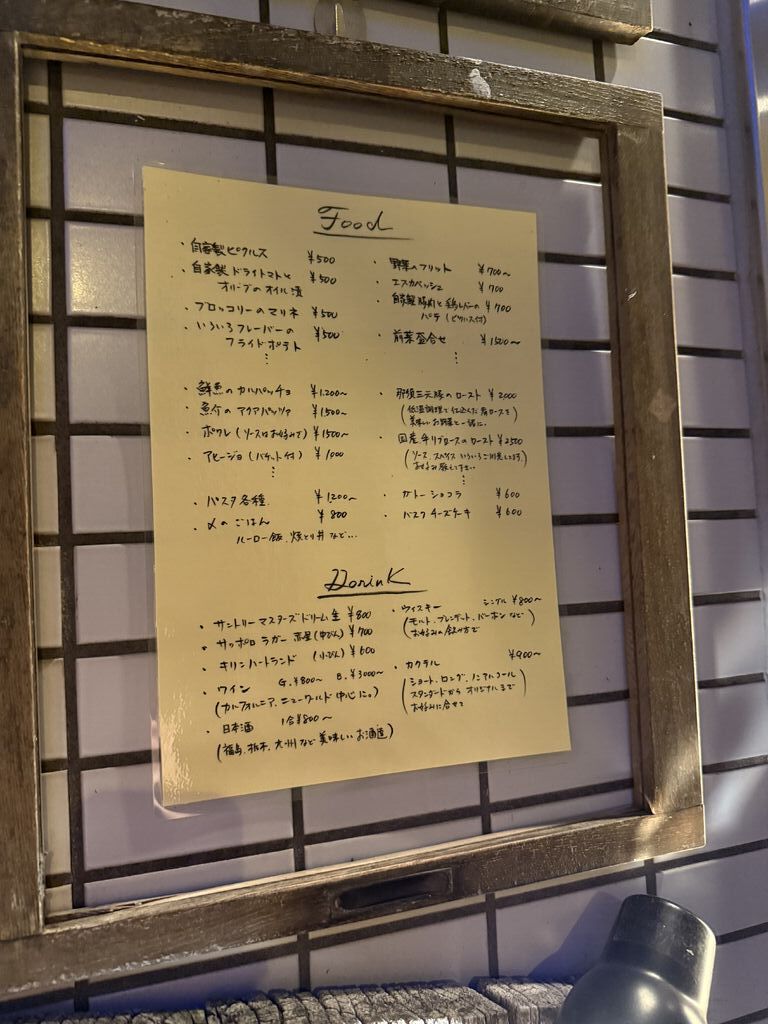 Food
・自家製ピクルス ¥500
・自家製ドライトマトと ¥500
オリーブのオイル漬
・ブロッコリーのマリネ ¥500
・いろいろフレーバーの ¥500
フライドポテト
⋮
・野菜のフリット ¥700〜
・エスカベッシュ ¥700
・自家製豚肉と鶏レバーの ¥700
パテ (ピクルス付)
・前菜盛合せ ¥1500〜
⋮
・鮮魚のカルパッチョ ¥1,200〜
・魚介のアクアパッツァ ¥1500〜
・ポワレ (ソースはお好みで) ¥1500〜
・アヒージョ (バケット付) ¥1000
⋮
・那須三元豚のロースト ¥2000
(低温調理で仕込んだ肩ロースを
美味しいお野菜と一緒に。)
・国産牛リブロースのロースト ¥2500
(ソース、スパイスいろいろご用意してます。
⋮
・パスタ各種 ¥1,200〜
・〆のごはん ¥800
ルーロー飯、焼とり丼など…
・ガトーショコラ ¥600
・バスクチーズケーキ ¥600
Dorink
・サントリーマスターズドリーム生 ¥800
・サッポロラガー赤星(中びん) ¥700
・キリンハートランド (小びん) ¥600
・ワイン G.¥800〜 B.¥3000〜
(カルフォルニア、ニューワールド中心に。)
・日本酒 1合¥800〜
(福島、栃木、九州など美味しいお酒達)
・ウィスキー シングル ¥800〜
(モルト、ブレンデット、バーボンなど
お好みの飲み方で)
・カクテル ¥900〜
(ショート、ロング、ノンアルコール
スタンダードからオリジナルまで
お好みに合せて)